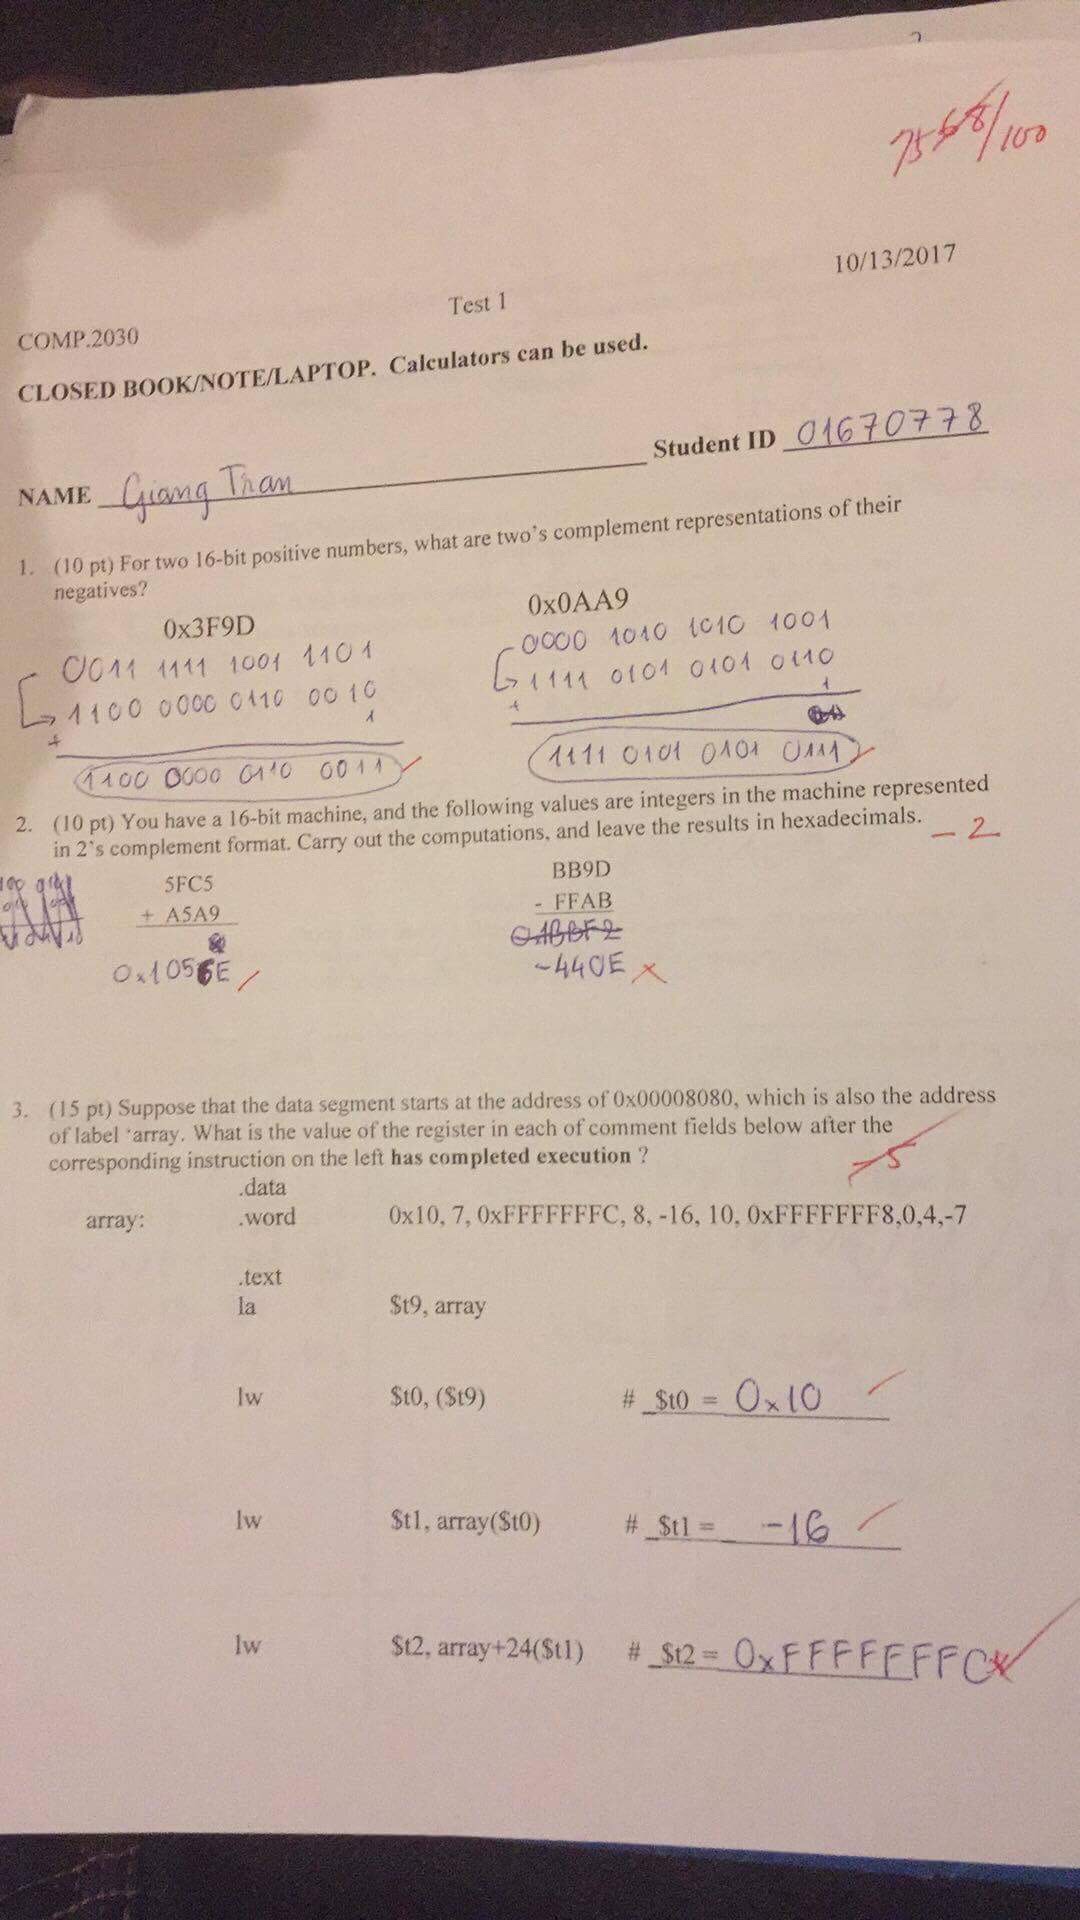 75 68/100
10/13/2017
Test 1
COMP.2030
CLOSED BOOK/NOTE/LAPTOP. Calculators can be used.
NAME Giang Tran Student ID 01670778
1. (10 pt) For two 16-bit positive numbers, what are two's complement representations of their
negatives?
0x3F9D 0x0AA9
0011 1111 1001 1101 0000 1010 1010 1001
1100 0000 0110 0010 1111 0101 0101 0110
+ 1 + 1
1100 0000 0110 0011 1111 0101 0101 0111
2. (10 pt) You have a 16-bit machine, and the following values are integers in the machine represented
in 2's complement format. Carry out the computations, and leave the results in hexadecimals. -2
5FC5 BB9D
+ A5A9 - FFAB
0x1056E -440E
3. (15 pt) Suppose that the data segment starts at the address of 0x00008080, which is also the address
of label 'array. What is the value of the register in each of comment fields below after the
corresponding instruction on the left has completed execution ? -5
.data
array: .word 0x10, 7, 0xFFFFFFFC, 8, -16, 10, 0xFFFFFFF8,0,4,-7
.text
la $t9, array
lw $t0, ($t9) # $t0 = 0x10
lw $t1, array($t0) # $t1 = -16
lw $t2, array+24($t1) # $t2 = 0xFFFFFFFC